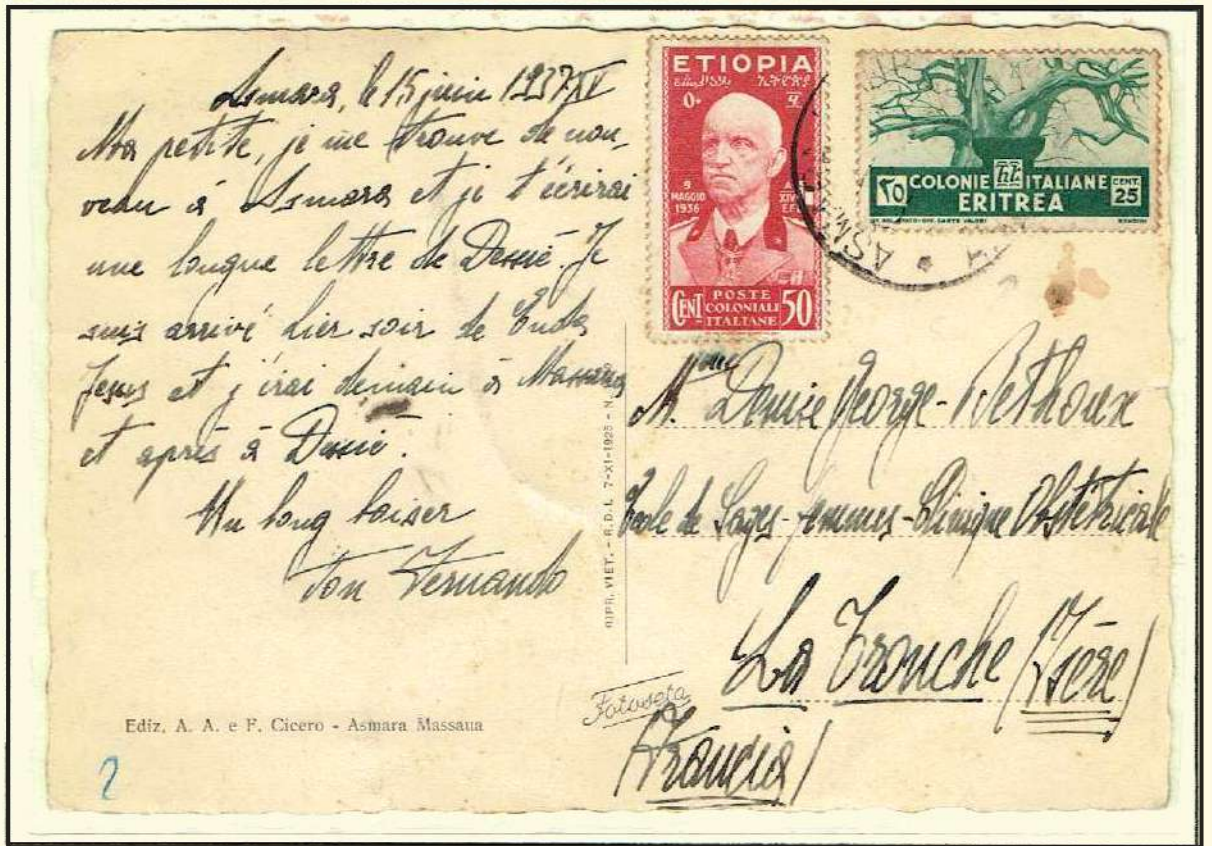 Asmara, le 15 juin 1937 XV
Ma petite, je me trouve de nou-
veau à Asmara et je t'écrirai
une longue lettre de Dessié. Je
suis arrivé hier soir de Enda
Jesus et j'irai demain à Massaua
et après à Dessié.
Un long baiser
Ton Fernando
Ediz. A. A. e F. Cicero - Asmara Massaua
2
RIPR. VIET. - R.D.L. 7-XI-1925 - N.
Fotoseta
ETIOPIA
9
MAGGIO
1936
XIV
E.F.
CENT 50
POSTE
COLONIALI
ITALIANE
COLONIE ITALIANE
ERITREA
CENT.
25
ASMARA
Mme Denise George-Bethoux
Ecole de Sages-femmes-Clinique Obstétricale
La Tronche (Isère)
(Francia)